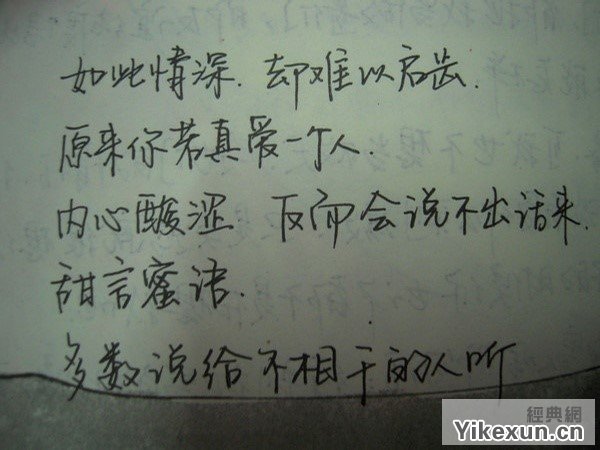 如此情深. 却难以启齿.
原来你若真爱一个人.
内心酸涩 反而会说不出话来.
甜言蜜语.
多数说给不相干的人听
經典網
Yikexun.cn